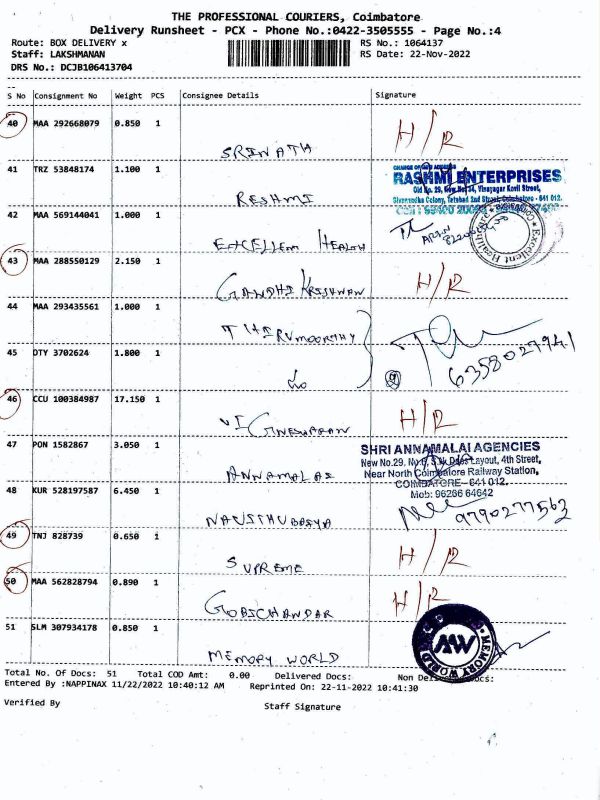 THE PROFESSIONAL COURIERS, Coimbatore
Delivery Runsheet - PCX - Phone No.:0422-3505555 - Page No.:4
Route: BOX DELIVERY x RS No.: 1064137
Staff: LAKSHMANAN RS Date: 22-Nov-2022
DRS No.: DCJB106413704
S No Consignment No Weight PCS Consignee Details Signature
40 MAA 292668079 0.850 1 H/R
SRINATH
41 TRZ 53848174 1.100 1
RASHMI ENTERPRISES
RESHMI
42 MAA 569144041 1.000 1
EXCELLENT HEALTH
Excellent Healthcare
43 MAA 288550129 2.150 1 H/R
GANDHI KRISHNAN
44 MAA 293435561 1.000 1
THIRUMOORTHY
45 DTY 3702624 1.800 1
6358027941
46 CCU 100384987 17.150 1 H/R
VIGNESHRAN
47 PON 1582867 3.050 1
SHRI ANNAMALAI AGENCIES
Near North Coimbatore Railway Station,
COIMBATORE - 641 012.
Mob: 96266 64642
ANNAMALAI
48 KUR 528197587 6.450 1
9790277563
49 TNJ 828739 0.650 1 H/R
SUPREME
50 MAA 562828794 0.890 1 H/R
GOBICHANDAR
51 SLM 307934178 0.850 1
MEMORY WORLD
MEMORY WORLD
Total No. Of Docs: 51 Total COD Amt: 0.00 Delivered Docs: Non Delivered Docs:
Entered By :NAPPINAX 11/22/2022 10:40:12 AM Reprinted On: 22-11-2022 10:41:30
Verified By Staff Signature